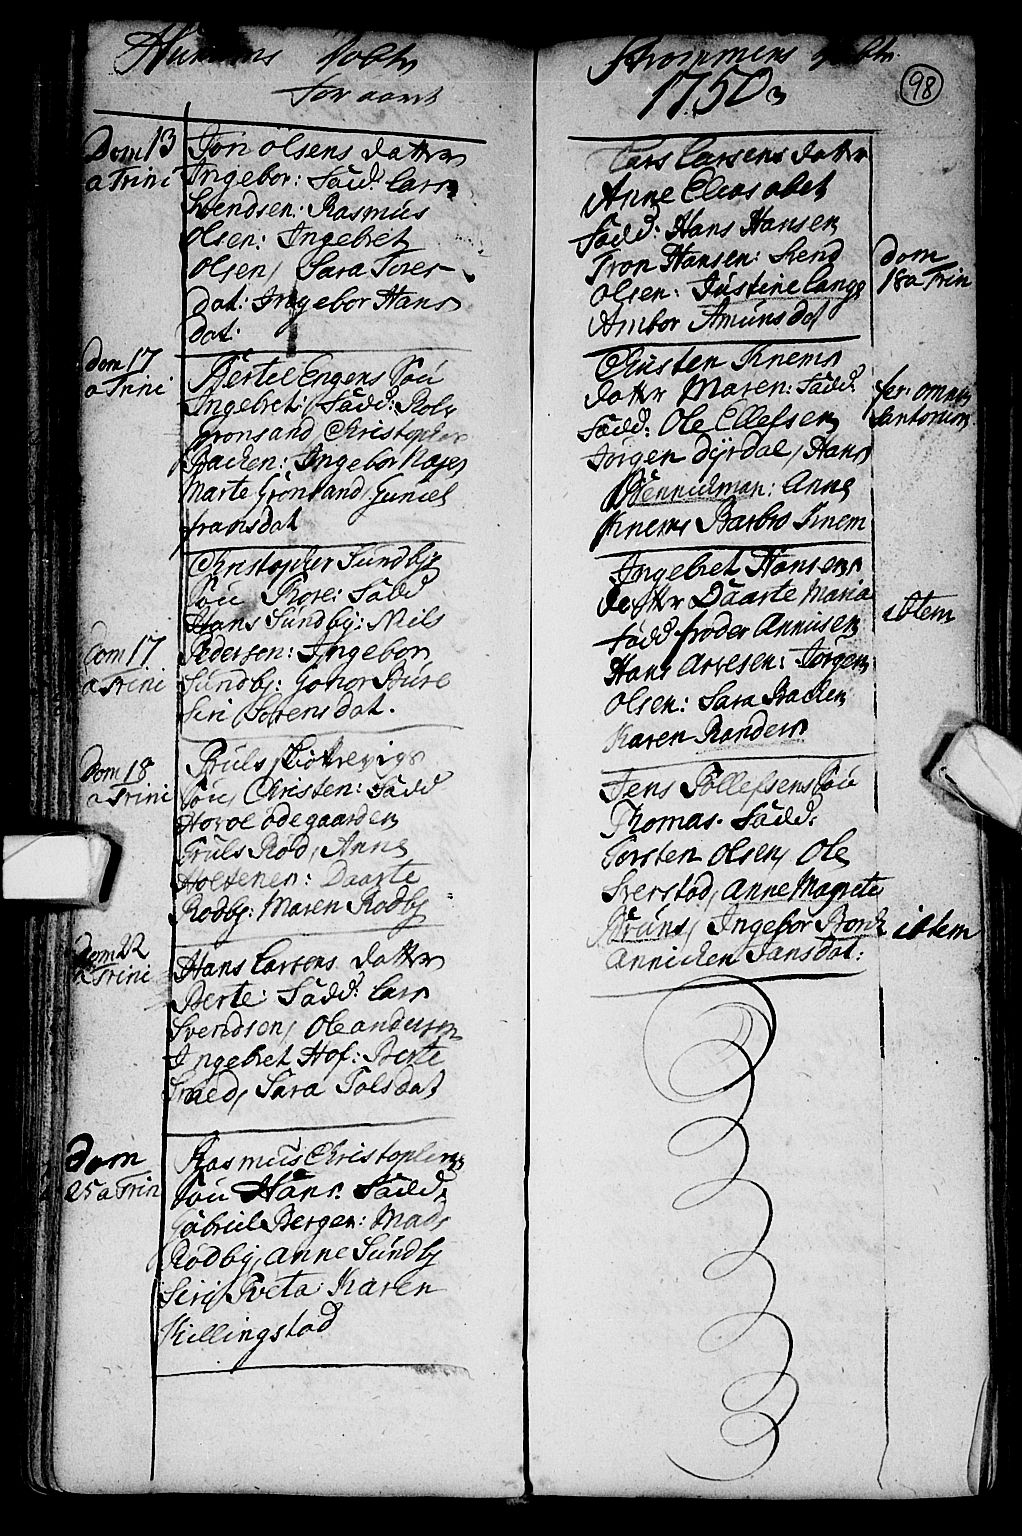 Hurums Døbte
for aaret
Dom 13
a Trini
Jon Olsens datter
Ingebor: Fadd: Lars
Svendsen: Rasmus
Olsen: Ingebret
Olsen, Sara Tores
dat: Ingebor Hans
dat:
dom 17
a Trini
Bertel Engens Søn
Ingebret: Fadd: Rolf
Grønsand Christopher
Backen: Ingebor
Marte Grønsand, Guniel
fransdat
Dom 17
a Trini
Christopher Sundbys
Søn Tore: Fadd
Hans Sundby: Niels
Pedersen: Ingebor
Sundby: Gonor Bure
Siri Sørensdat.
Dom 18
a Trini
Truls
Søn, Christen: Fadd
Hovel Ødegaarden
Truls Rød, Anne
Holtenen: Daarte
Rødby: Maren Rødby
Dom 22
a Trini
Hans Larsens datter
Berte: Fadd: Lars
Svendsen, Ole andersen
Ingebret Hof: Berte
Sara Tolsdat
Dom
25 a Trin
Rasmus Christophers
Søn Hans. Fadd:
Gabriel Bergen: Mads
Rødby, Anne Sundby
Siri Tveta Karen
Killingstad
Strømmens Døbte
98
1750
Lars Larsens datter
Anne Elisabet
Fadd: Hans Hansen
Tron Hansen: Svend
Olsen: Justine Lange
Ambor Amunsdat
dom
18 a Trin
Christen Knems
datter Maren: Fadd:
Fadd: Ole Ellefsen
Jørgen Dyrdal, Hans
Anne
Knems Barbro Knem
fer: omnium
Santorum
Ingebret Hansens
datter Daarte Maria
Fadd
Hans Arvesen: Jørgen
Olsen: Sara Backen
Karen Randers
ibtem
Jens Tollefsens Søn
Thomas. Fadd:
Torsten Olsen, Ole
Sverstad, Anne Magrete
Bruns, Ingebor Borch
Annichen Jansdat:
ibtem